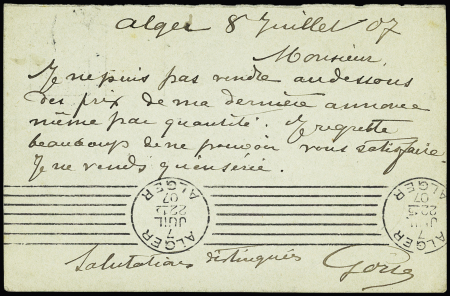 Alger 8 Juillet 07
Monsieur,
Je ne puis pas vendre au dessous
des prix de ma dernière annonce
même par quantité. Je regrette
beaucoup de ne pouvoir vous satisfaire.
Je ne vends qu'en série.
ALGER
7
JUIL
07
ALGER
ALGER
07
ALGER
Salutations distingués